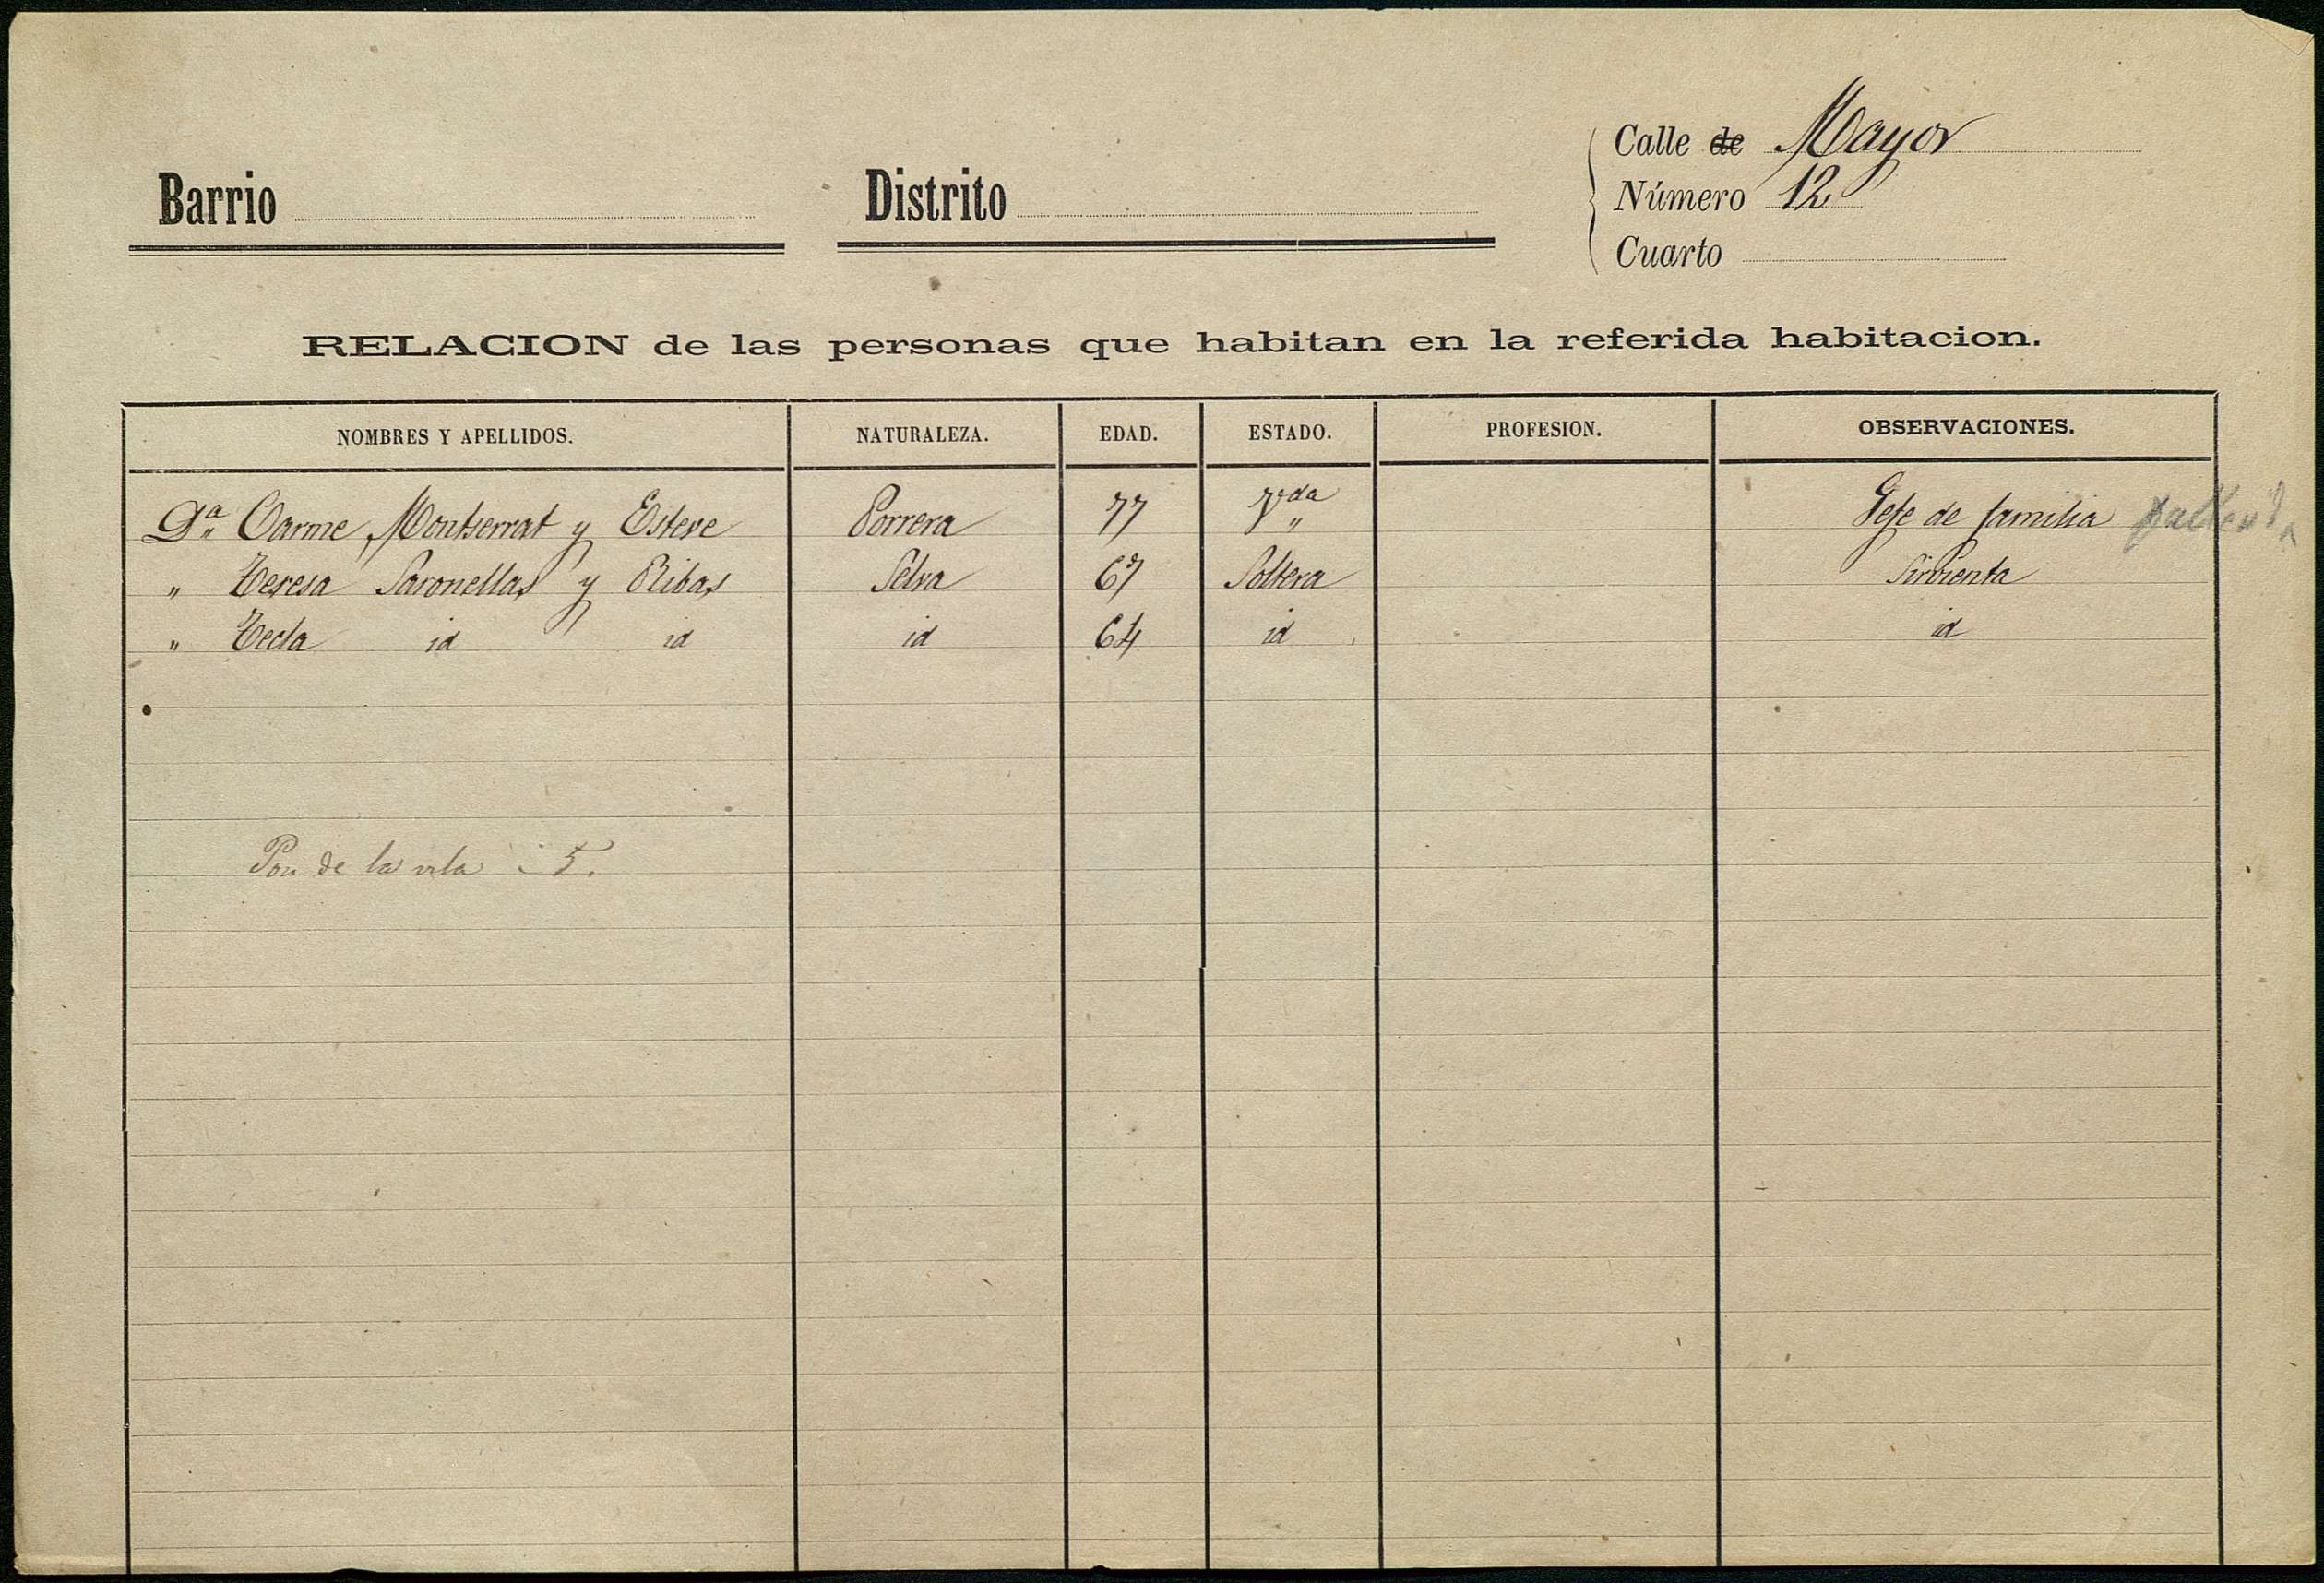 Barrio
Distrito
Calle de Mayor
Número 12
Cuarto
RELACION de las personas que habitan en la referida habitacion.
NOMBRES Y APELLIDOS. NATURALEZA. EDAD. ESTADO. PROFESION. OBSERVACIONES.
Dª Carme Montserrat y Esteve Porrera 77 Vda Gefe de familia
" Teresa Saronellas y Ribas Selva 67 Soltera Sirvienta
" Tecla id id id 64 id id
Pou de la vila 5.